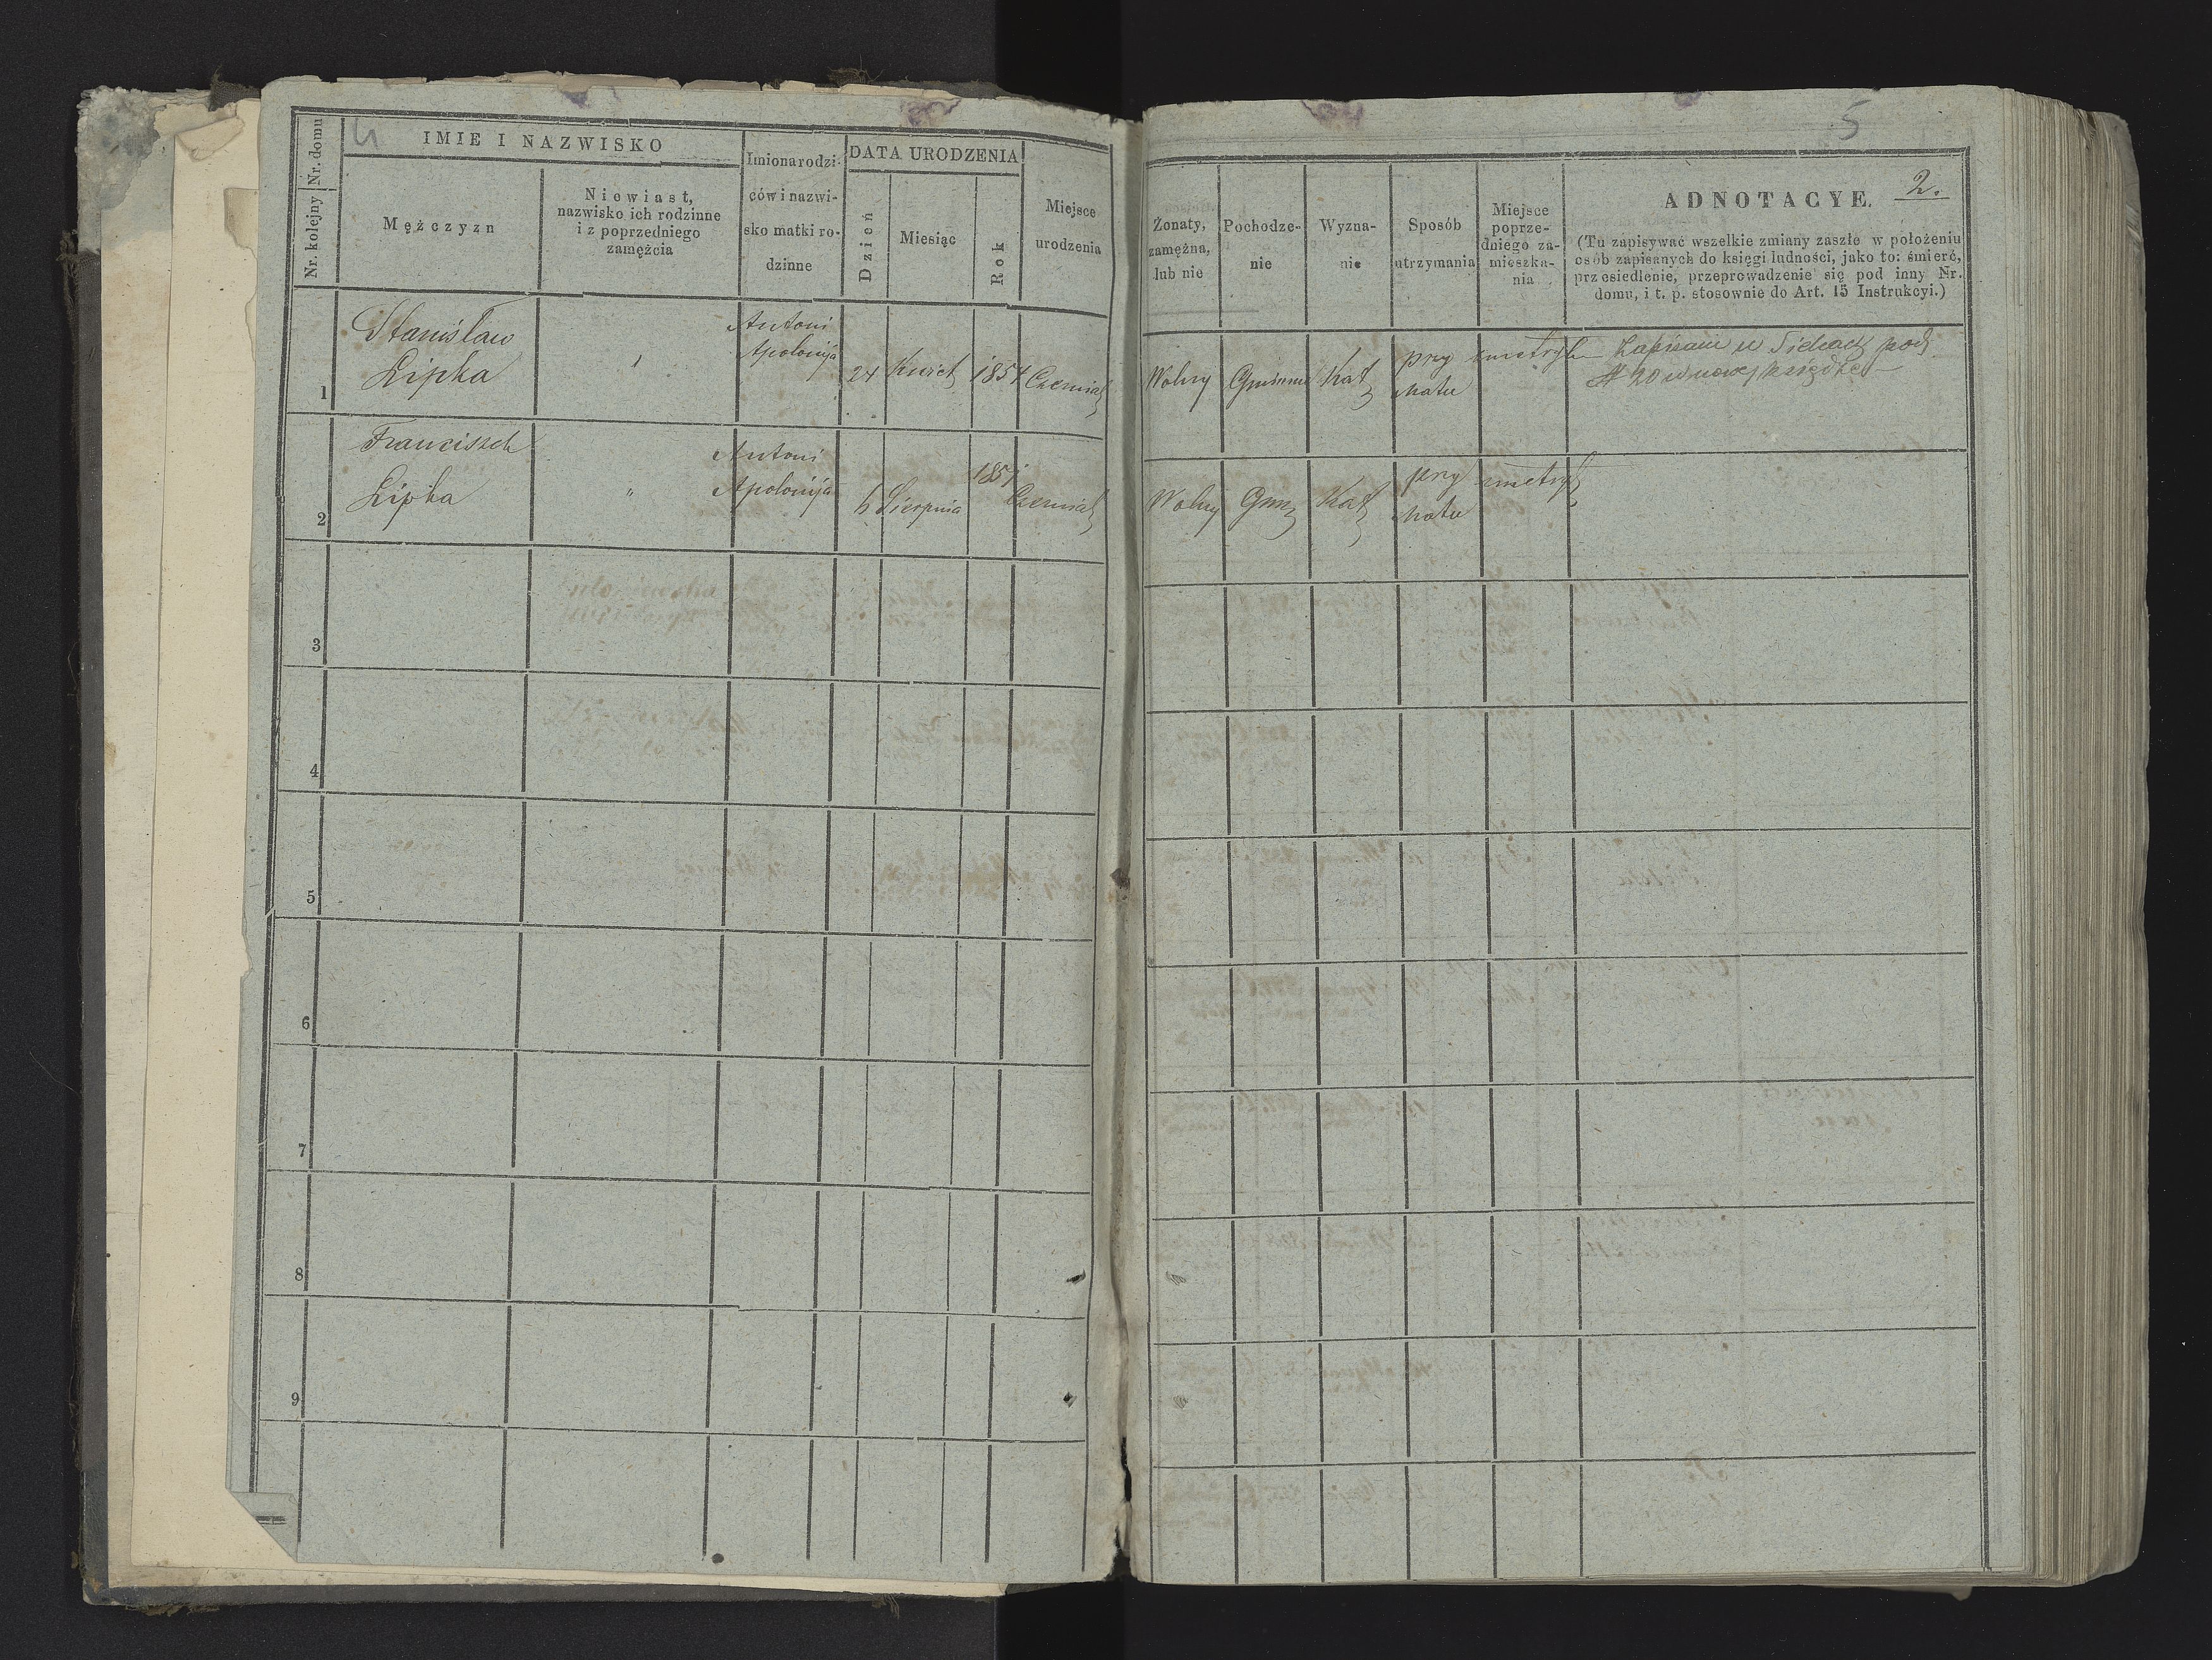 4
Nr. domu
Nr. kolejny
IMIE I NAZWISKO
Mężczyzn
Niewiast,
nazwisko ich rodzinne
i z poprzedniego
zamężcia
Imiona rodzi-
ców i nazwi-
sko matki ro-
dzinne
DATA URODZENIA
Dzień
Miesiąc
Rok
Miejsce
urodzenia
1
Stanisław
Lipka
Antoni
Apolonija
24 Kwiet 1854
2
Franciszek
Lipka
"
Antoni
Apolonija
6 Sierpnia
3
4
5
6
7
8
9
5
Żonaty,
zamężna,
lub nie
Pochodze-
nie
Wyzna-
nie
Sposób
utrzymania
Miejsce
poprze-
dniego za-
mieszka-
nia
ADNOTACYE. 2.
(Tu zapisywać wszelkie zmiany zaszłe w położeniu
osób zapisanych do księgi ludności, jako to: śmierć,
przesiedlenie, przeprowadzenie się pod inny Nr.
domu, i t. p. stosownie do Art. 15 Instrukcyi.)
Wolny Gminne Kat
przy
Matce
pod
20 w nowej księdze
Wolny Kat
przy
Matce